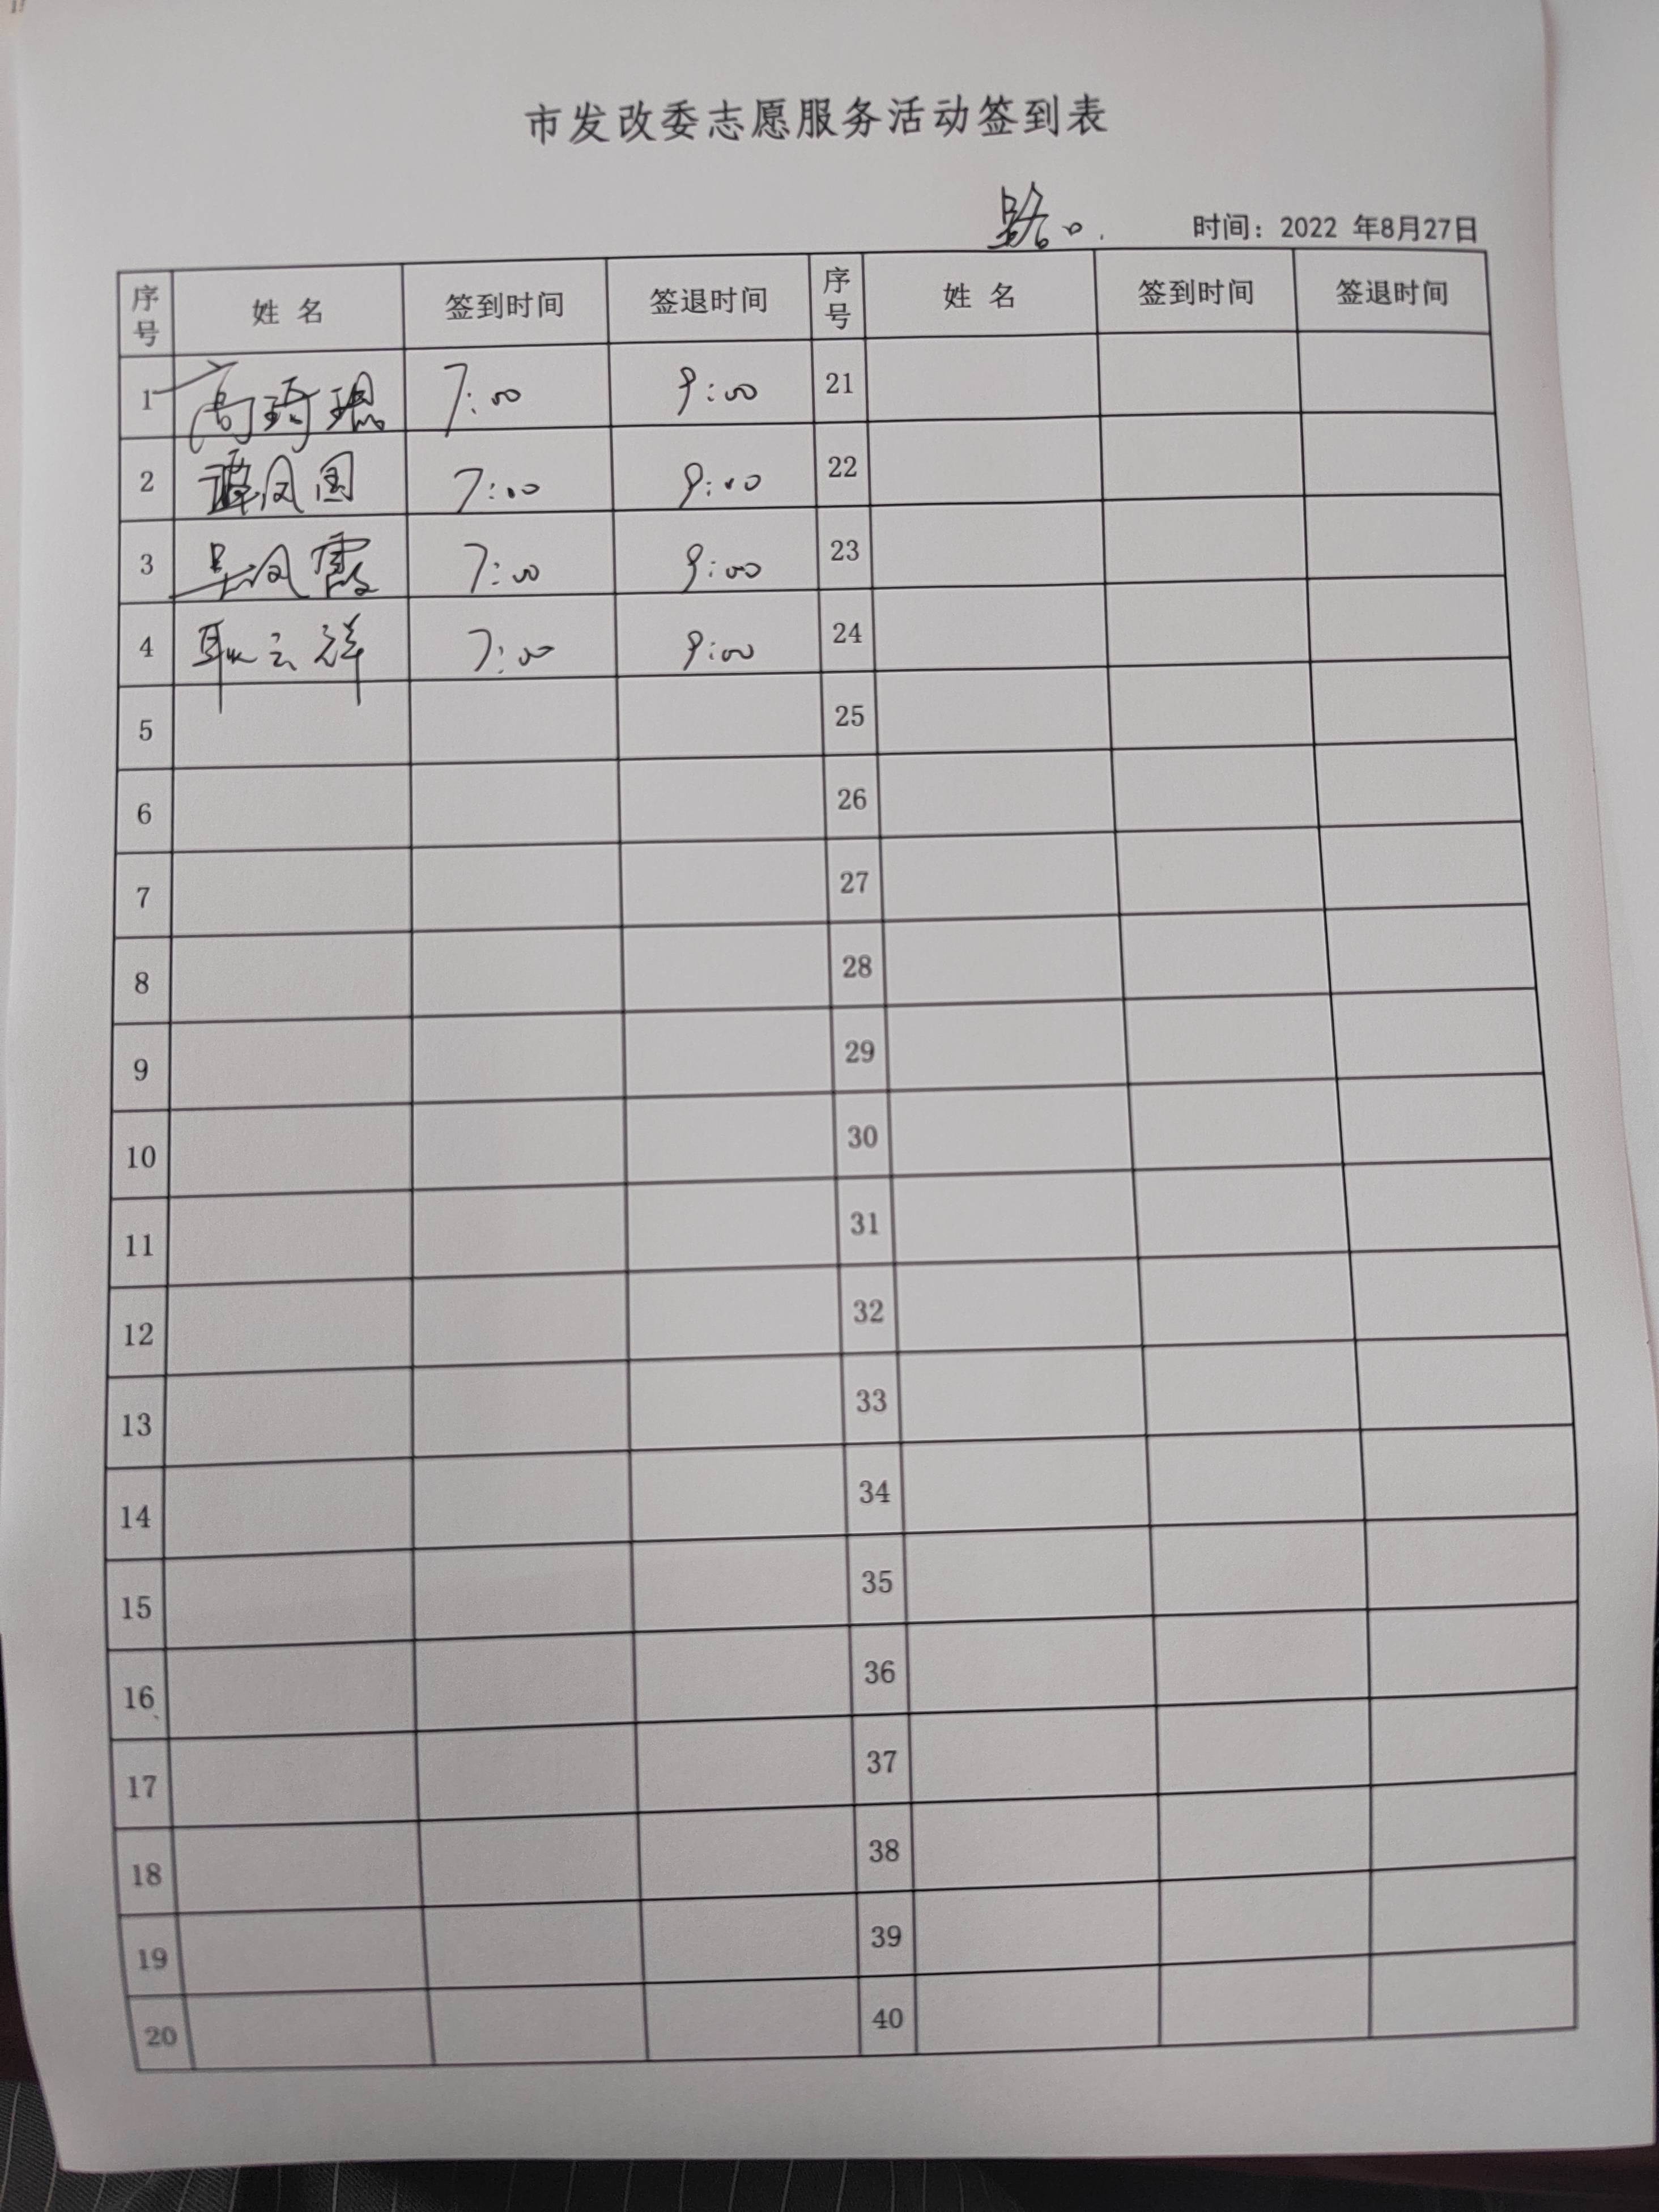 市发改委志愿服务活动签到表
路口.
时间：2022 年8月27日
序号 姓 名 签到时间 签退时间 序号 姓 名 签到时间 签退时间
1 高琦琨 7:00 9:00 21
2 凤国 7:00 9:00 22
3 吴凤霞 7:00 9:00 23
4 耿云祥 7:00 9:00 24
5 25
6 26
7 27
8 28
9 29
10 30
11 31
12 32
13 33
14 34
15 35
16 36
17 37
18 38
19 39
20 40